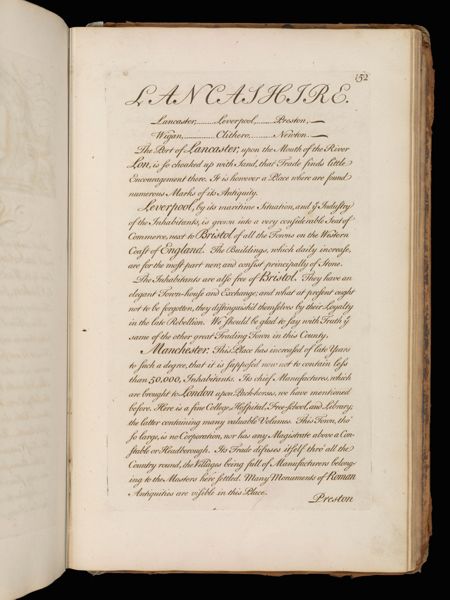 152
LANCASHIRE.
Lancaster,........Leverpool,.......Preston,
Wigan,..............Clithero..........Newton.
The Port of Lancaster, upon the Mouth of the River
Lon, is so choaked up with Sand, that Trade finds little
Encouragement there. It is however a Place where are found
numerous Marks of its Antiquity.
Leverpool, by its maritime Situation, and ye Industry
of the Inhabitants, is grown into a very considerable Seat of
Commerce, next to Bristol of all the Towns on the Western
Coast of England. The Buildings, which daily increase,
are for the most part new, and consist principally of Stone.
The Inhabitants are also free of Bristol. They have an
elegant Town-house and Exchange; and what at present ought
not to be forgotten, they distinguish'd themselves by their Loyalty
in the late Rebellion. We should be glad to say with Truth ye
same of the other great Trading Town in this County.
Manchester. This Place has increased of late Years
to such a degree, that it is supposed now not to contain less
than 50,000, Inhabitants. Its chief Manufactures, which
are brought to London upon Pack-horses, we have mentioned
before. Here is a fine College, Hospital, Free-school, and Library;
the latter containing many valuable Volumes. This Town, tho'
so large, is no Corporation, nor has any Magistrate above a Con-
stable or Headborough. Its Trade difuses itself thro' all the
Country round, the Villages being full of Manufacturers belong-
ing to the Masters here settled. Many Monuments of Roman
Antiquities are visible in this Place.
Preston